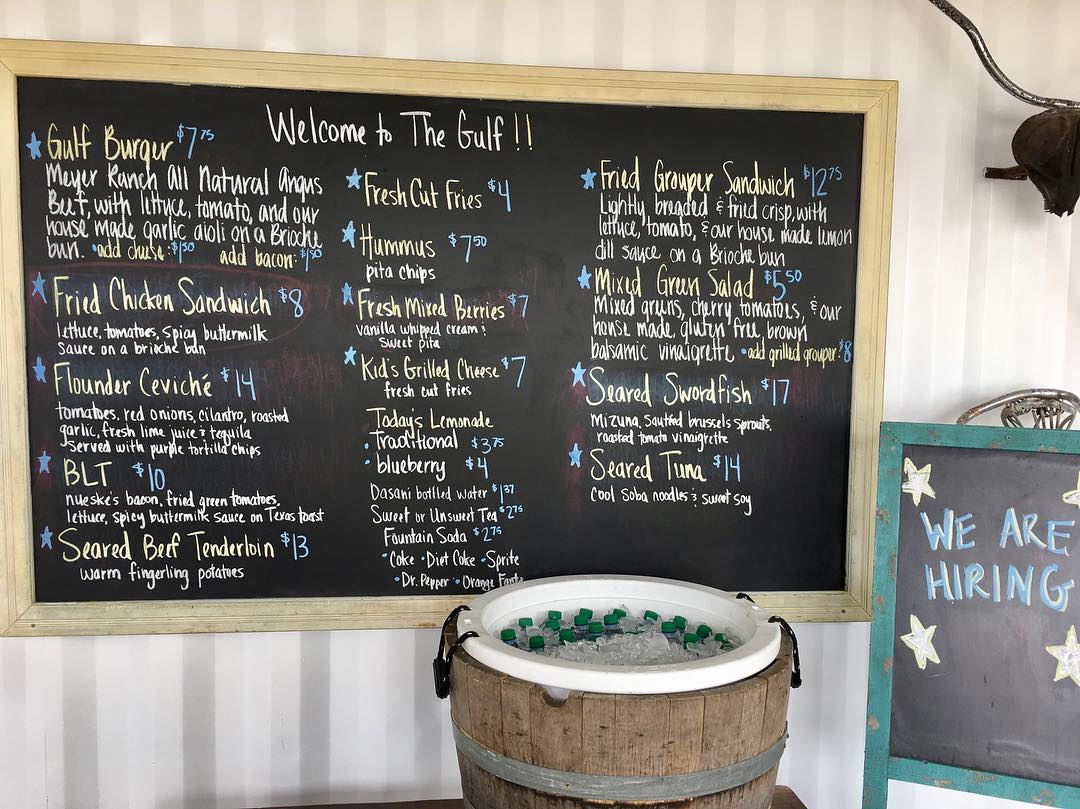 Welcome to The Gulf !!
Gulf Burger $7.75
Meyer Ranch All Natural Angus
Beef, with lettuce, tomato, and our
house made garlic aioli on a Brioche
bun. • add cheese: $1.50 add bacon: $1.50
Fried Chicken Sandwich $8
lettuce, tomatoes, spicy buttermilk
sauce on a brioche bun
Flounder Ceviché $14
tomatoes, red onions, cilantro, roasted
garlic, fresh lime juice & tequila
served with purple tortilla chips
BLT $10
nueske's bacon, fried green tomatoes,
lettuce, spicy buttermilk sauce on Texas toast
Seared Beef Tenderloin $13
warm fingerling potatoes
Fresh Cut Fries $4
Hummus $7.50
pita chips
Fresh Mixed Berries $7
vanilla whipped cream &
sweet pita
Kid's Grilled Cheese $7
fresh cut fries
Today's Lemonade
• Traditional $3.75
• blueberry $4
Dasani bottled water $1.37
Sweet or Unsweet Tea $2.75
Fountain Soda $2.75
• Coke • Diet Coke • Sprite
• Dr. Pepper • Orange Fanta
Fried Grouper Sandwich $12.75
Lightly breaded & fried crisp, with
lettuce, tomato, & our house made lemon
dill sauce on a Brioche bun
Mixed Green Salad $5.50
Mixed greens, cherry tomatoes, & our
house made, gluten free brown
balsamic vinaigrette • add grilled grouper: $8
Seared Swordfish $17
Mizuna, sautéed brussels sprouts,
roasted tomato vinaigrette
Seared Tuna $14
cool soba noodles & sweet soy
WE ARE
HIRING